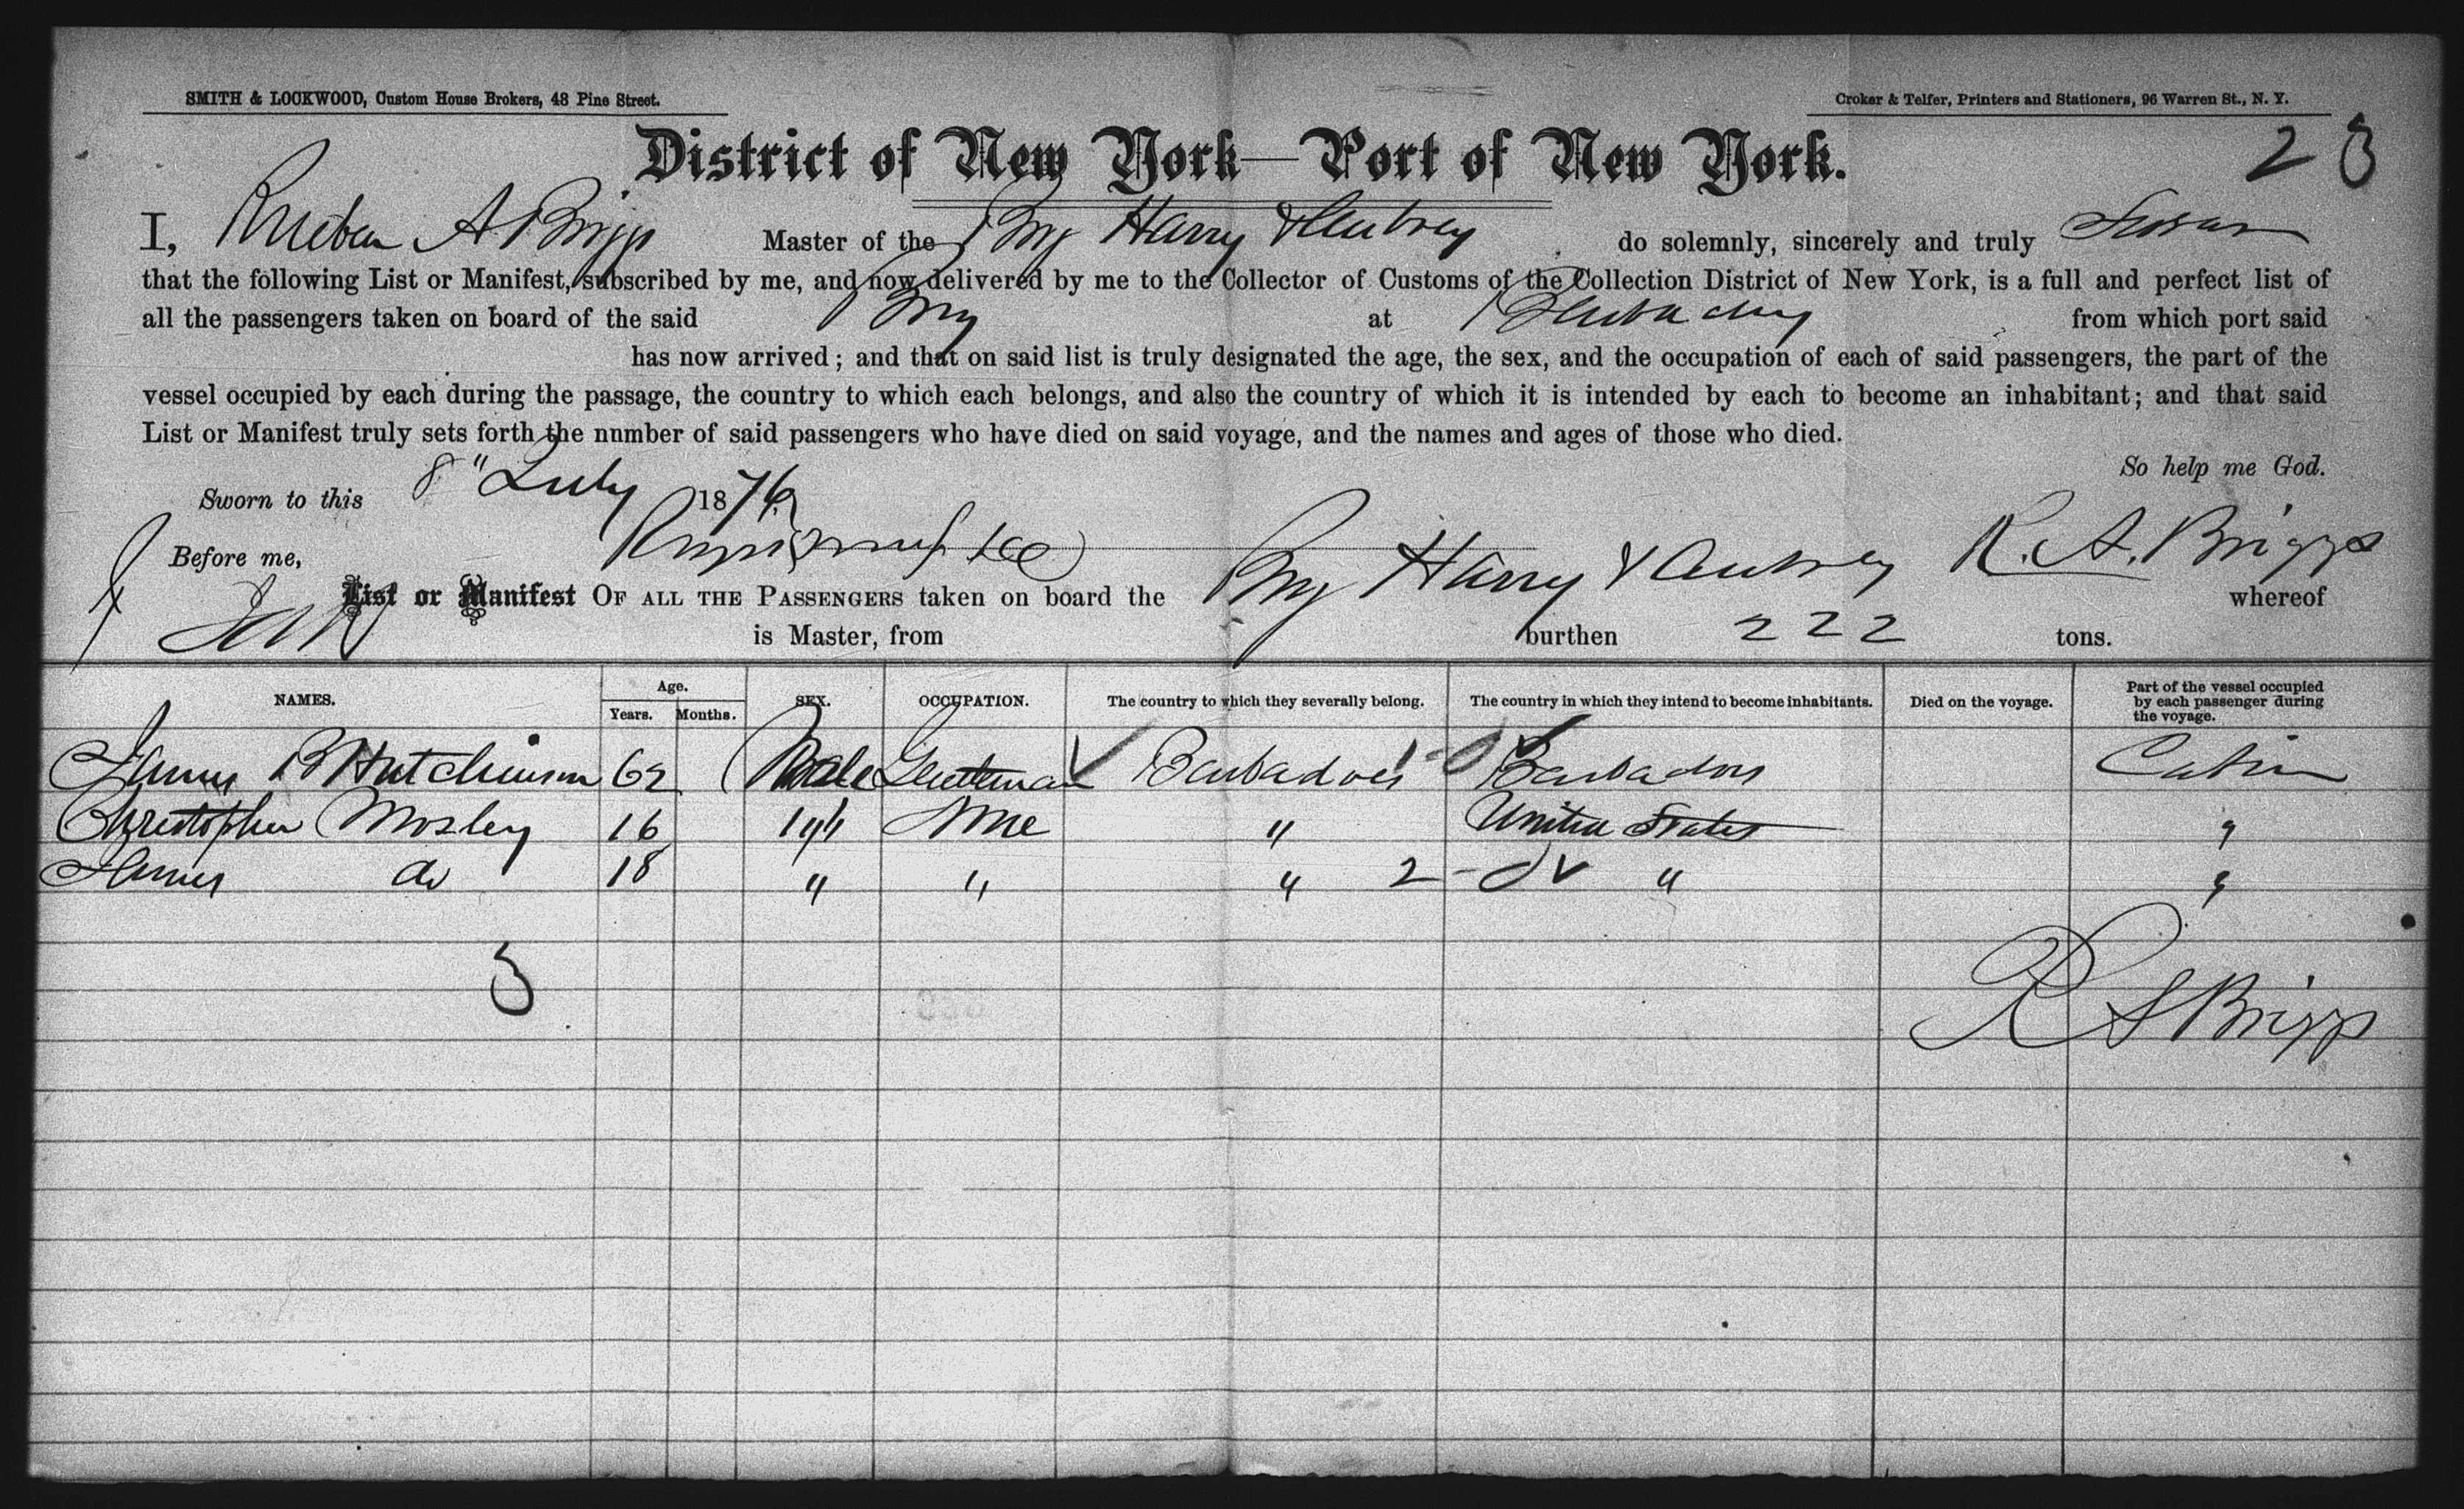 SMITH & LOCKWOOD, Custom House Brokers, 48 Pine Street.
Croker & Telfer, Printers and Stationers, 96 Warren St., N. Y.
District of New York—Port of New York.
2 3
I, Rueben A Briggs Master of the Brig Harry & Aubrey do solemnly, sincerely and truly Swear
that the following List or Manifest, subscribed by me, and now delivered by me to the Collector of Customs of the Collection District of New York, is a full and perfect list of
all the passengers taken on board of the said Brig at from which port said
has now arrived; and that on said list is truly designated the age, the sex, and the occupation of each of said passengers, the part of the
vessel occupied by each during the passage, the country to which each belongs, and also the country of which it is intended by each to become an inhabitant; and that said
List or Manifest truly sets forth the number of said passengers who have died on said voyage, and the names and ages of those who died.
So help me God.
Sworn to this 8" July 1876
R. A. Briggs
Before me,
List or Manifest OF ALL THE PASSENGERS taken on board the Brig Harry & Aubrey whereof
is Master, from burthen 222 tons.
NAMES. Age. Years. Months. SEX. OCCUPATION. The country to which they severally belong. The country in which they intend to become inhabitants. Died on the voyage. Part of the vessel occupied by each passenger during the voyage.
James B Hutchinson 62 Male Gentleman Barbadoes 1 Barbadoes Cabin
Christopher Mosley 16 None " United States "
James do 18 " " " 2 "  "
3
R A Briggs